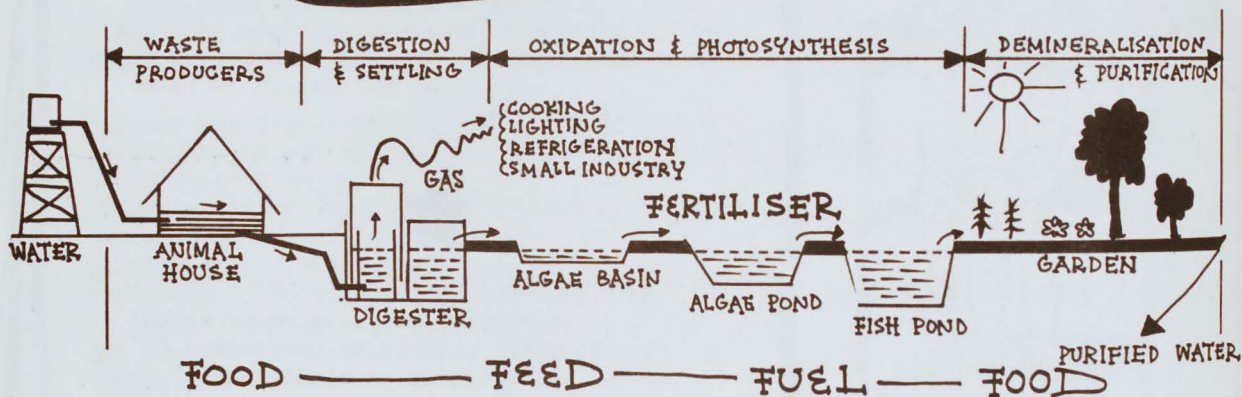 WASTE
PRODUCERS
DIGESTION
& SETTLING
OXIDATION & PHOTOSYNTHESIS
DEMINERALISATION
& PURIFICATION
COOKING
LIGHTING
REFRIGERATION
SMALL INDUSTRY
GAS
FERTILISER
WATER
ANIMAL
HOUSE
DIGESTER
ALGAE BASIN
ALGAE POND
FISH POND
GARDEN
PURIFIED WATER
FOOD — FEED — FUEL — FOOD